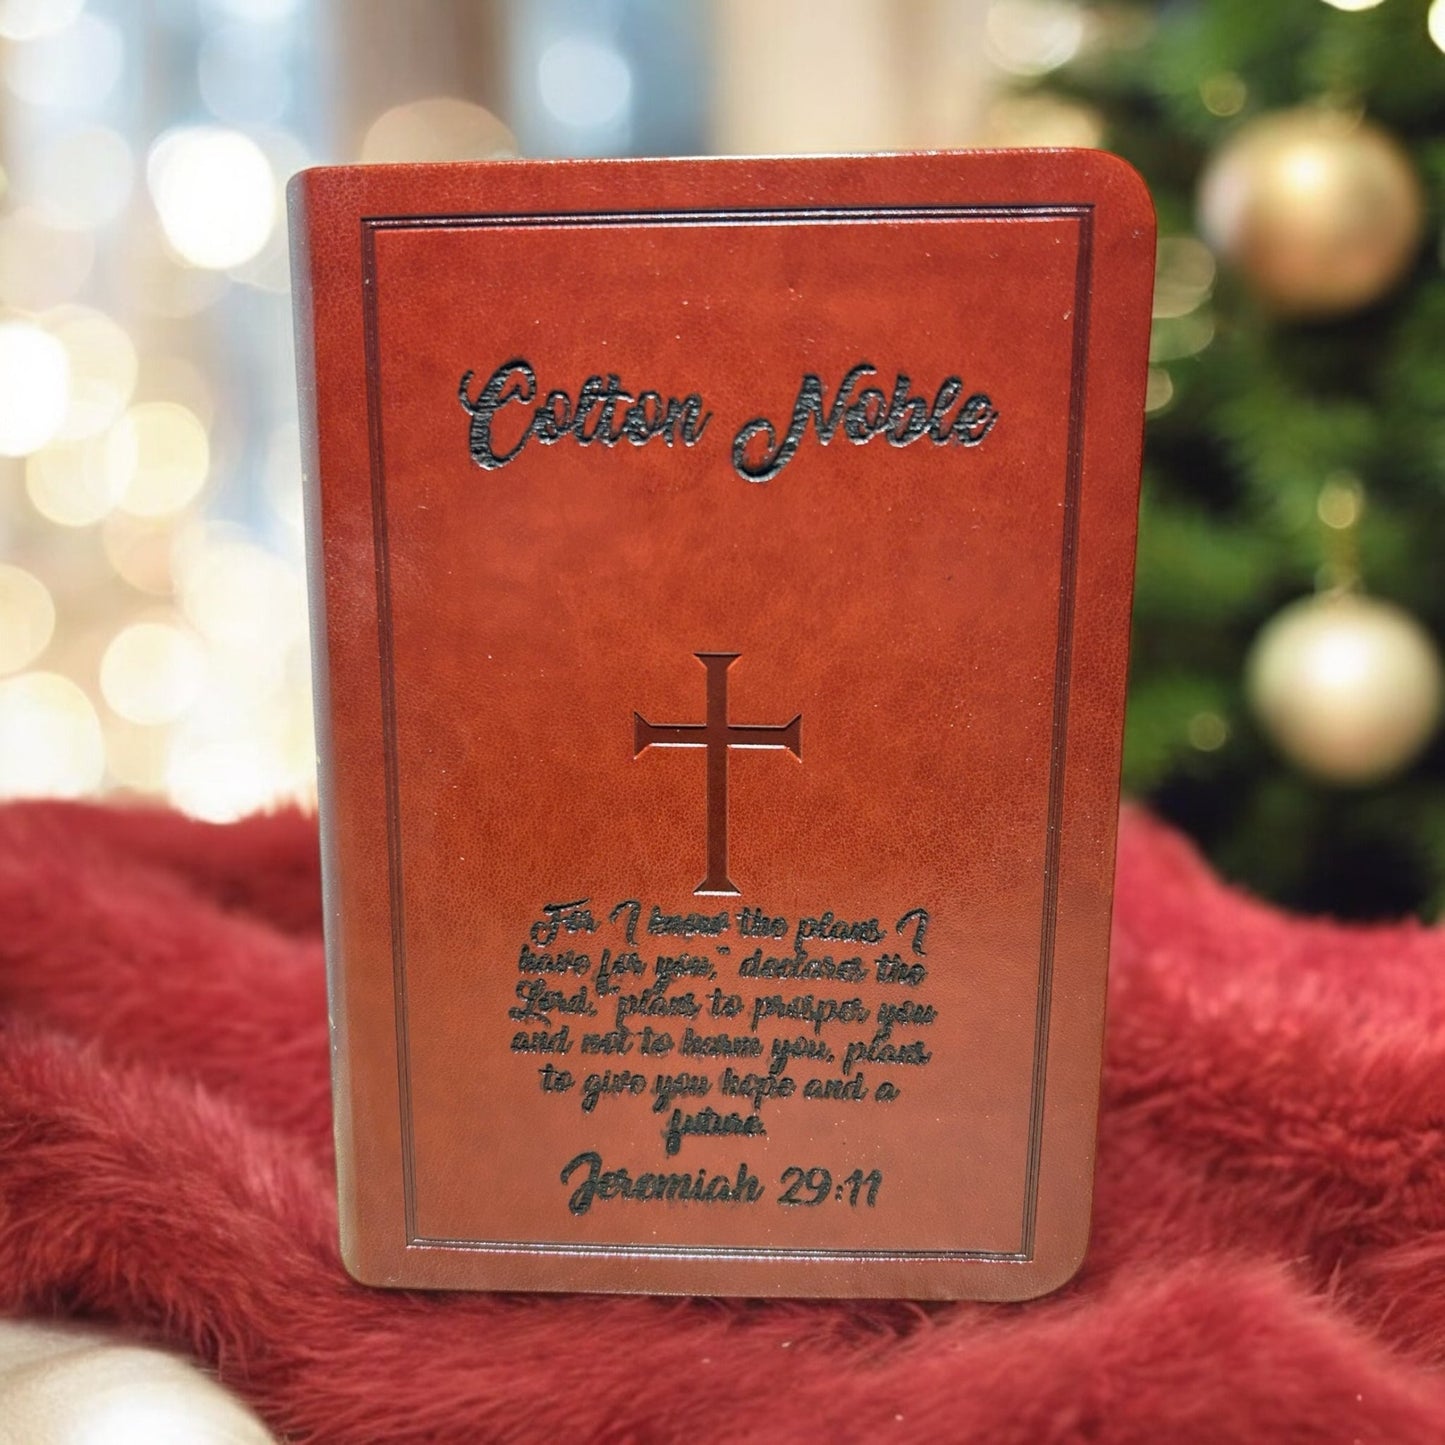 Colton Noble
For I know the plans I
have for you," declares the
Lord, "plans to prosper you
and not to harm you, plans
to give you hope and a
future.
Jeremiah 29:11